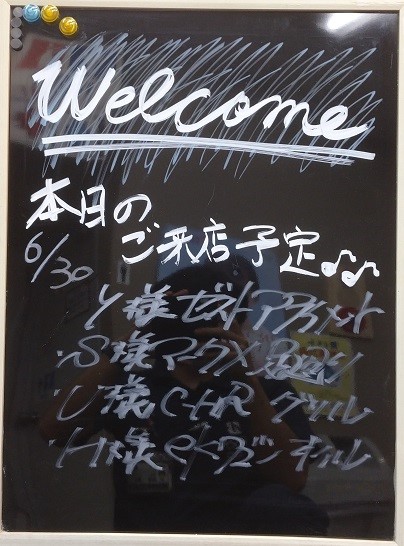 Welcome
本日の
ご来店予定♪♪
6/30
Y様 ゼスト アライメント
S様 マークX
U様 C-HR グリル
H様 eKワゴン オイル